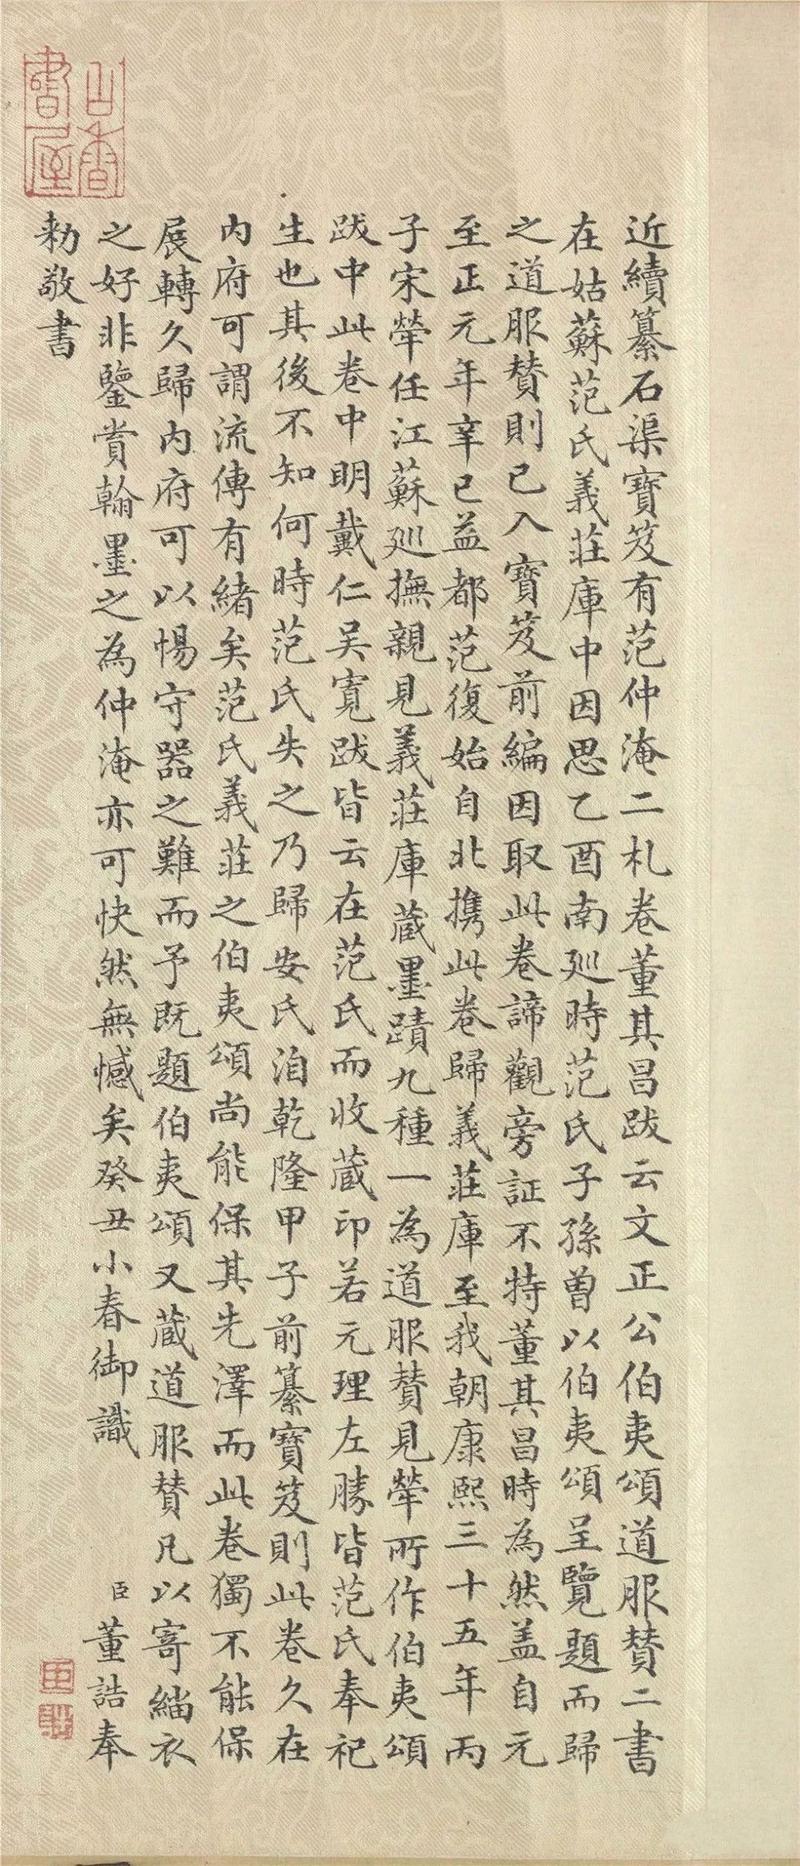 近續纂石渠寶笈有范仲淹二札卷董其昌跋云文正公伯夷頌道服賛二書
在姑蘇范氏義莊庫中因思乙酉南廵時范氏子孫曽以伯夷頌呈覽題而歸
之道服賛則已入寶笈前編因取此卷諦觀旁証不特董其昌時為然盖自元
至正元年辛巳益都范復始自北携此卷歸義莊庫至我朝康熙三十五年丙
子宋犖任江蘇廵撫親見義莊庫蔵墨蹟九種一為道服賛見犖所作伯夷頌
跋中此卷中明戴仁吴寬跋皆云在范氏而收蔵印若元理左勝皆范氏奉祀
生也其後不知何時范氏失之乃歸安氏洎乾隆甲子前纂寶笈則此卷久在
内府可謂流傳有緒矣范氏義莊之伯夷頌尚能保其先澤而此卷獨不能保
展轉久歸内府可以惕守器之難而予既題伯夷頌又蔵道服賛凡以寄緇衣
之好非鑒賞翰墨之為仲淹亦可快然無憾矣癸丑小春御識
臣董誥奉
勅敬書
古香書屋